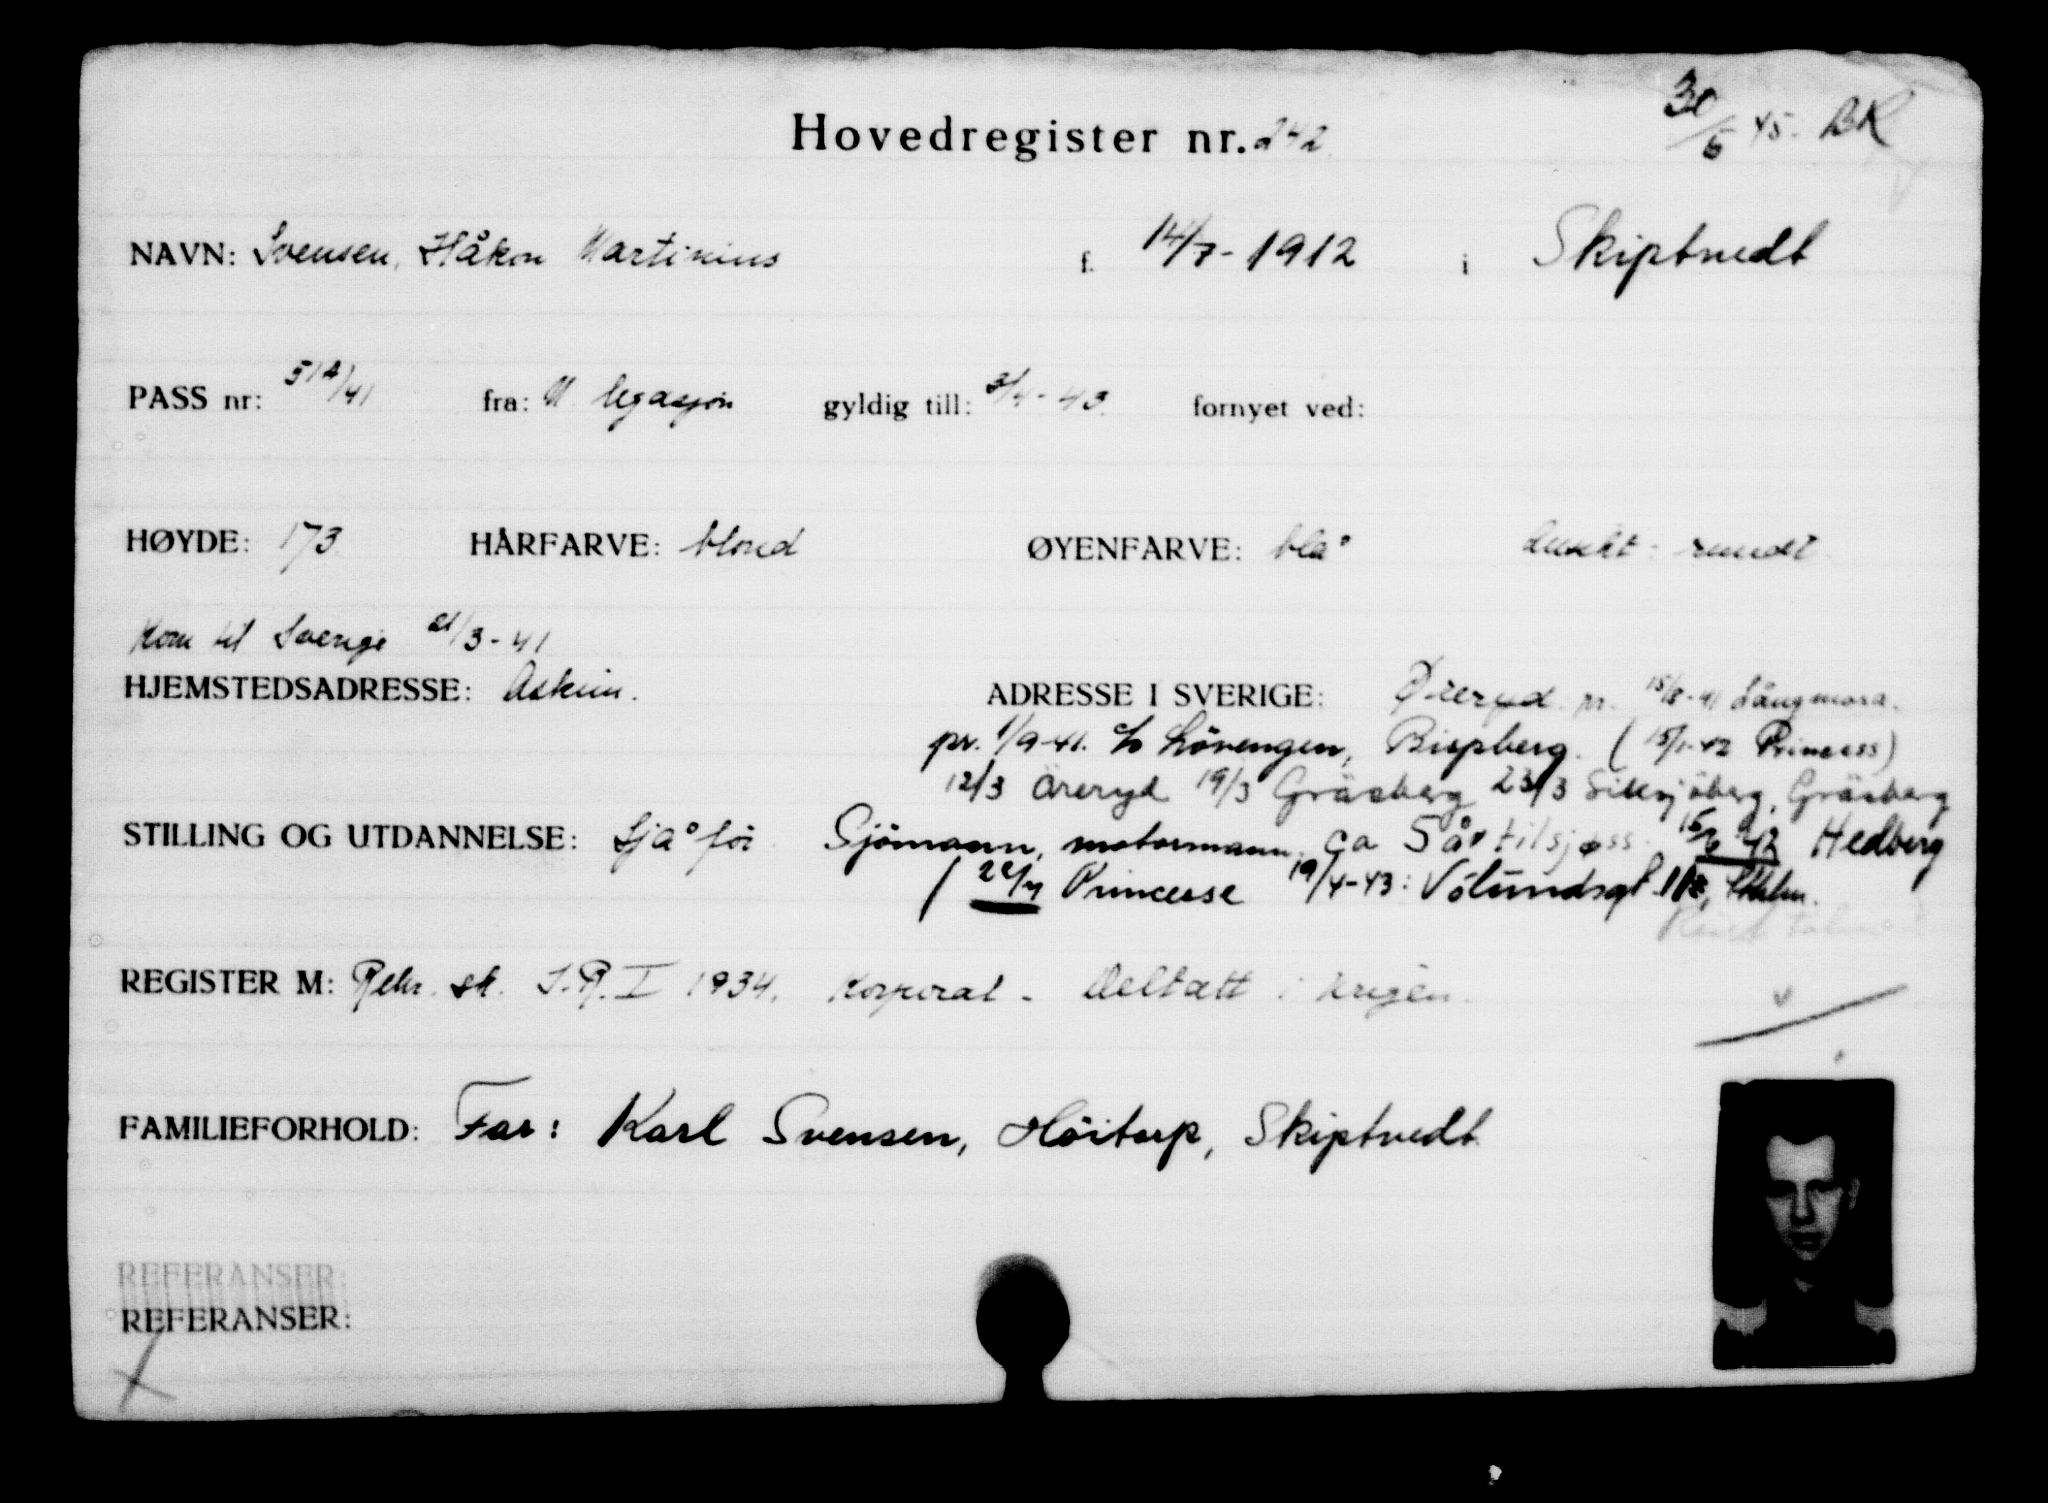 30/6 45. BK
Hovedregister nr. 242
NAVN: Svensen, Håkon Martinius f. 14/7-1912 i Skiptvedt
PASS nr: 512/41 fra: N legasjon gyldig till: 3/4-43. fornyet ved:
HØYDE: 173 HÅRFARVE: blond ØYENFARVE: blå Ansikt: rundt.
Kom til Sverige 21/3-41
HJEMSTEDSADRESSE: Askim. ADRESSE I SVERIGE: Øreryd. pr. 15/8-41 Långmora.
pr. 1/9-41. c/o Lövengen, Bispberg. (15/1-42 Princess)
12/3 Öreryd 19/3 Gräsberg 23/3 Siksjöberg, Gräsberg
STILLING OG UTDANNELSE: Sjåfør. Sjömann, motormann. ca 5 år tilsjøss. 15/6 42 Hedberg
/ 22/4 Princesse 19/4-43: Völundsgt. 112, Sthlm.
REGISTER M: Rekr. sk. I.R. I 1934. Korporal - Deltatt i krigen.
FAMILIEFORHOLD: Far: Karl Svensen, Höitorp, Skiptvedt.
REFERANSER:
REFERANSER: